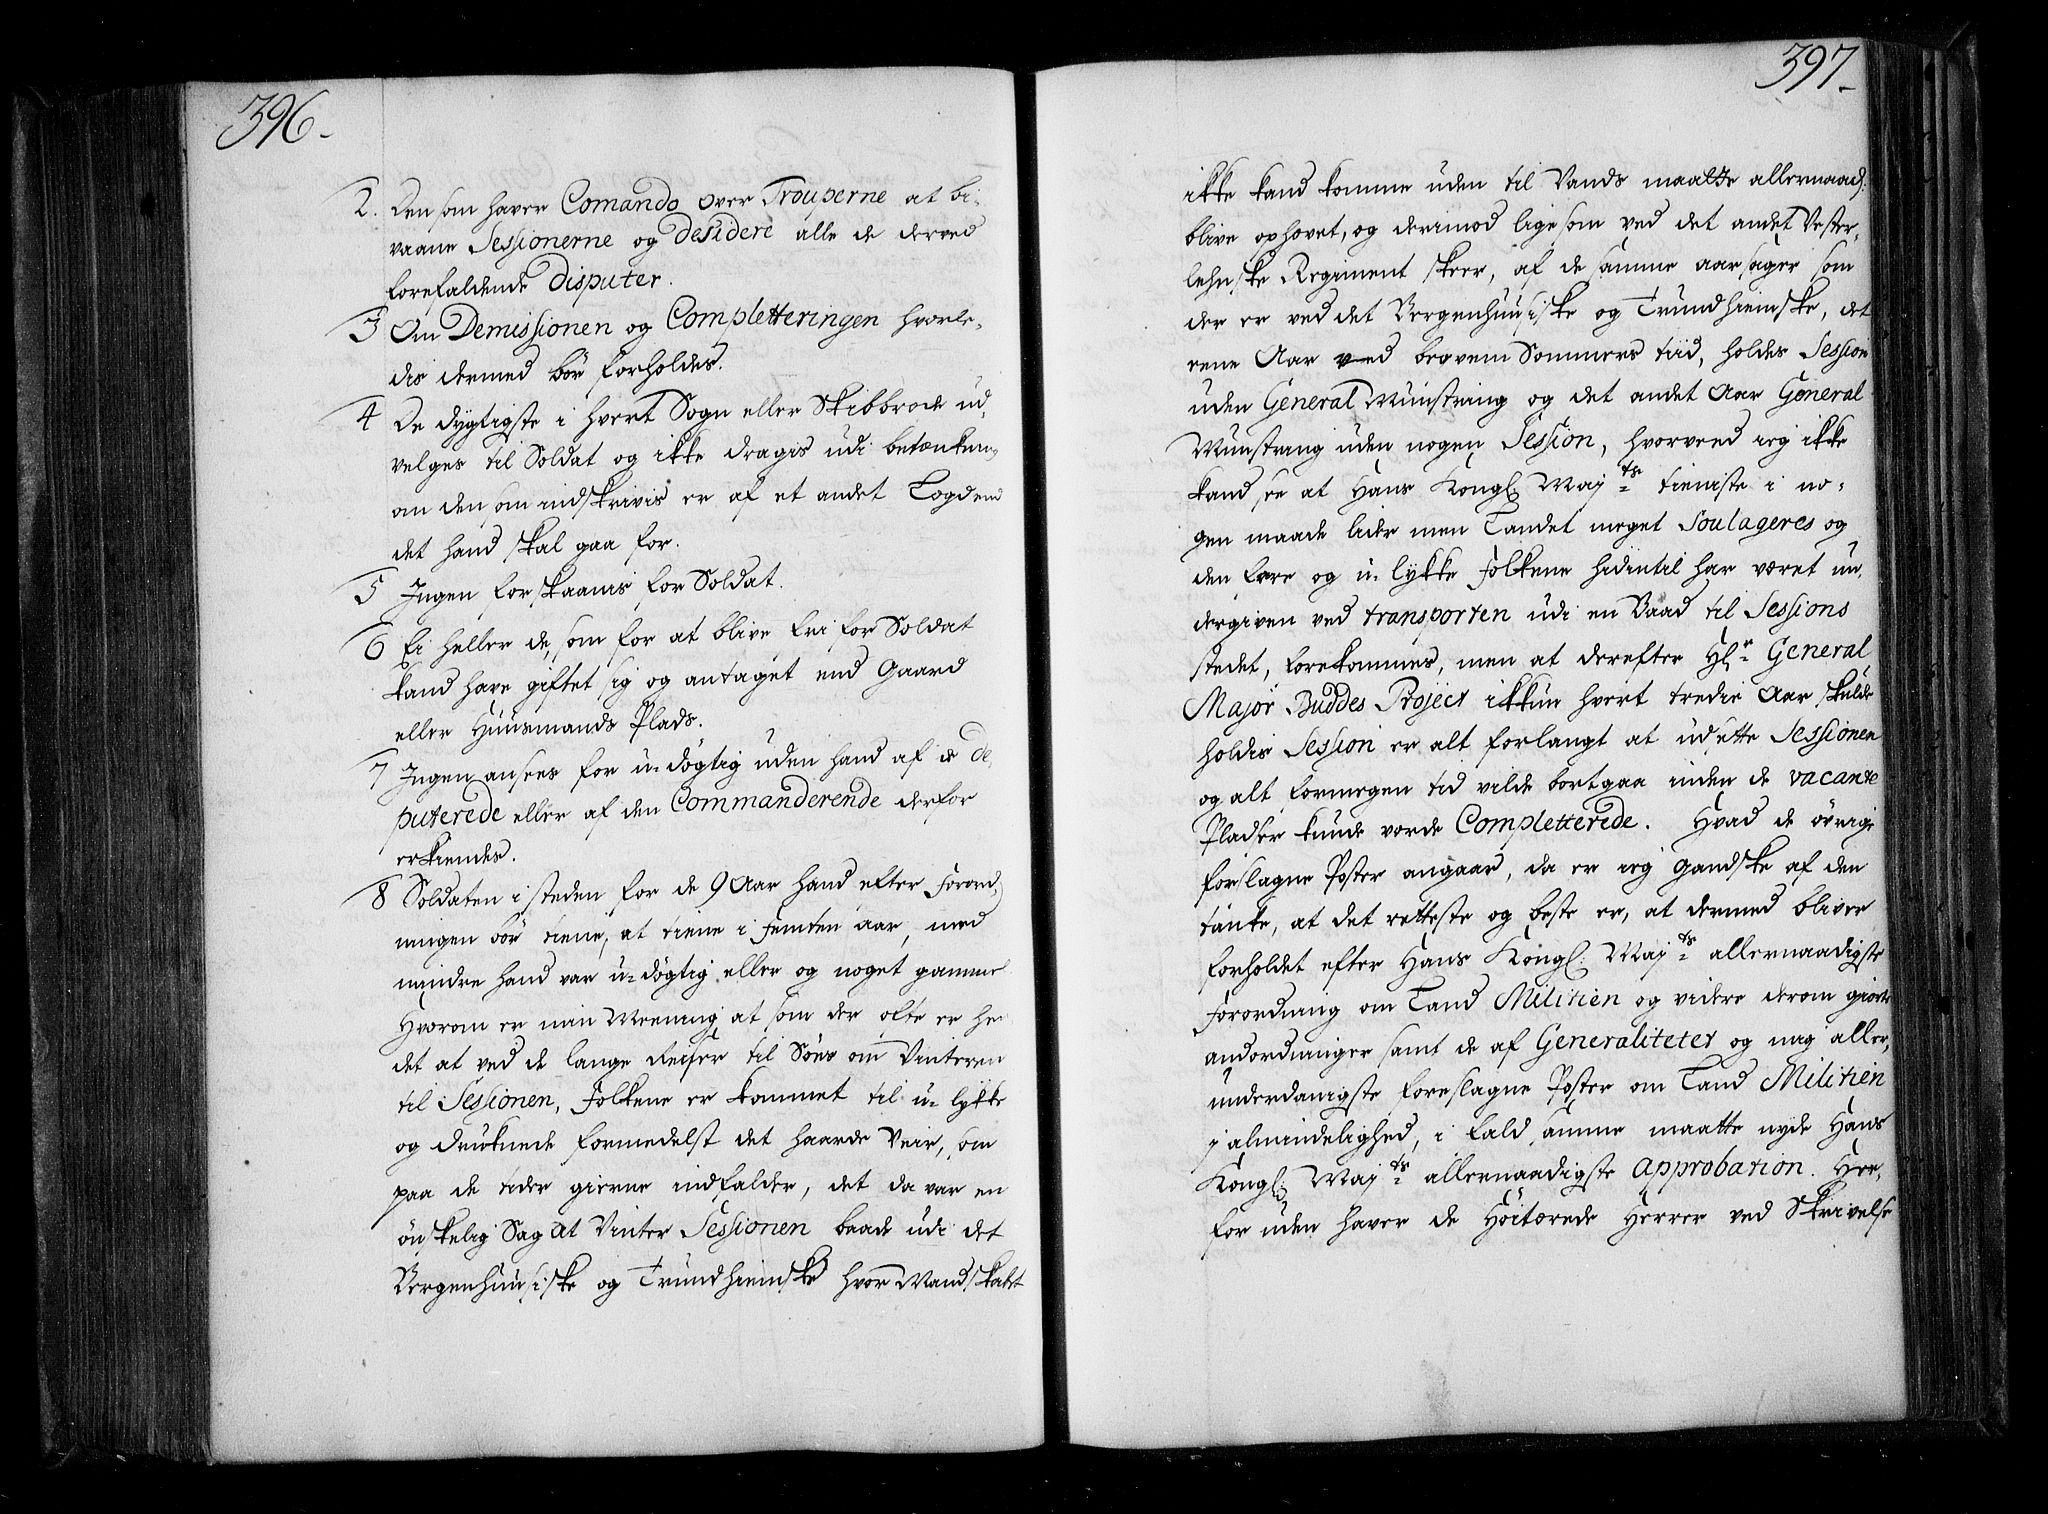 396.
2. Den som haver Comando over Trouperne at bi-
vaane Sessionerne og desidere alle de derved
forefaldende disputer.
3 Om Demissionen og Completteringen hvorle-
dis dermed bör forholdes.
4 De dygtigste i hvert Sogn eller Skibbrede ud-
velges til Soldat og ikke dragis udi betænkning
om den som indskrivis er af et andet Lægd end
det hand skal gaa for.
5 Ingen forskaanis for Soldat.
6 Ei heller de, som for at blive fri for Soldat
kand have giftet sig og antaget end Gaard
eller Huusmands Plads.
7 Ingen ansees for u-dögtig uden hand af de De-
puterede eller af den Commanderende derfor
erkiendes.
8 Soldaten i steden for de 9 Aar hand efter Forord-
ningen bör tiene, at tiene i femten aar, med
mindre hand var u-dögtig eller og noget gammel
Hvorom er min Meening at som der ofte er hen-
det at ved de lange Reiser til Söes om Vinteren
til Sessionen, Folkene er kommet til u-lykke
og druknede formedelst det haarde Veir, som
paa de tider gierne indfalder, det da var en
önskelig Sag at Vinter Sessionen baade udi det
Bergenhuusiske og Trundhiemske hvor Mandskabet
397.
ikke kand komme uden til Vands maatte allernaad.
blive ophevet, og derimod lige som ved det andet Vester-
lehnske Regiment skeer, af de samme aarsager som
der er ved det Bergenhuusiske og Trundhiemske, det
eene Aar ved beqvem Sommers tiid, holdes Session
uden General Munstring og det andet Aar General
Munstring uden nogen Session, hvorved ieg ikke
kand see at Hans Kongl. Maj.ts tieniste i no-
gen maade lider men Landet meget Soulageres og
den fare og u-lykke Folkene hidintil har været un-
dergiven ved transporten udi en Baad til Sessions
stedet, forekommes, men at derefter Hr. General
Major Buddes Project ikkun hvert tredie Aar skulde
holdis Session er alt forlangt at udsette Sessionen
og alt formegen tid vilde bortgaa inden de vacante
Pladser kunde vorde Completterede. Hvad de övrige
forslagne Poster angaar, da er ieg gandske af den
tanke, at det retteste og beste er, at dermed bliver
forholdet efter Hans Kongl. Maj.ts allernaadigste
Forordning om Land Militien og videre derom giorte
andordninger samt de af Generalitetet og mig aller-
underdanigste foreslagne Poster om Land Militien
i almindelighed, i fald samme maatte nyde Hans
Kongl. Maj.ts allernaadigste approbation. Her-
for uden haver de Höitærede Herrer ved Skrivelse